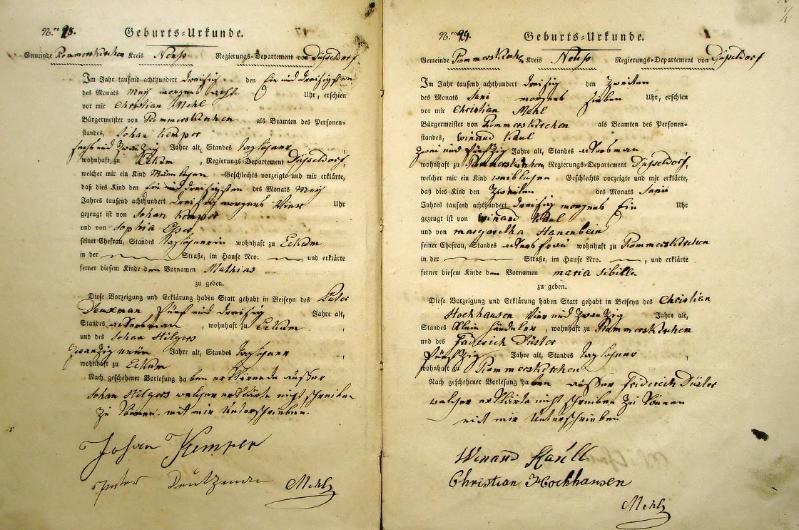 Geburts-Urkunde.
Gemeinde Rommerskirchen Kreis Neuss Regierungs-Departement von Düsseldorf
Im Jahr tausend achthundert dreisig den Ein und dreisigsten
des Monats Mey morgens Uhr, erschien
vor mir Christian Mehl
Bürgermeister von Rommerskirchen als Beamten des Personen-
standes, Johan Kemper
sechs und zwanzig Jahre alt, Standes Taglohner
wohnhaft zu Eckum, Regierungs-Departement Düsseldorf,
welcher mir ein Kind Geschlechts vorzeigte und mir erklärte,
daß dies Kind den Ein und dreisigsten des Monats Mey
Jahres tausend achthundert dreisig morgens Vier Uhr
gezeugt ist von Johan Kemper
und von Sophia
seiner Ehefrau, Standes Taglohnerin wohnhaft zu Eckum
in der Straße, im Hause Nro. und erklärte
ferner diesem Kinde den Vornamen Mathias
zu geben.
Diese Vorzeigung und Erklärung haben Statt gehabt in Beiseyn des Peter
fünf und dreisig Jahre alt,
Standes Ackersman, wohnhaft zu Eckum,
und des Johan Hilgers
zwanzig neun Jahre alt, Standes Taglohner,
wohnhaft zu Eckum
Nach geschehener Vorlesung haben erklärende außer
Johan Hilgers welcher erklärte nicht schreiben
zu können mit mir Unterschrieben.
Johan Kemper
Peter
Mehl
Geburts-Urkunde.
Gemeinde Rommerskirchen Kreis Neuss Regierungs-Departement von Düsseldorf
Im Jahr tausend achthundert dreisig den Zweiten
des Monats Juni morgens sieben Uhr, erschien
vor mir Christian Mehl
Bürgermeister von Rommerskirchen als Beamten des Personen-
standes, Winand
zwei und fünfzig Jahre alt, Standes Ackersman
wohnhaft zu Rommerskirchen Regierungs-Departement Düsseldorf,
welcher mir ein Kind weiblichen Geschlechts vorzeigte und mir erklärte,
daß dies Kind den Zweiten des Monats Juni
Jahres tausend achthundert dreisig morgens Ein Uhr
gezeugt ist von Winand
und von Margaretha Hanenbein
seiner Ehefrau, Standes Ackersfrau wohnhaft zu Rommerskirchen
in der Straße, im Hause Nro. und erklärte
ferner diesem Kinde den Vornamen Maria Sibilla
zu geben.
Diese Vorzeigung und Erklärung haben Statt gehabt in Beiseyn des Christian
Hochhausen Vier und Zwanzig Jahre alt,
Standes Klein händeler, wohnhaft zu Rommerskirchen
und des Friderich Düster
fünfzig Jahre alt, Standes Taglohner,
wohnhaft zu Rommerskirchen
Nach geschehener Vorlesung haben außer Friderich Düster
welcher erklärte nicht schreiben zu können
mit mir Unterschrieben
Winand
Christian Hochhausen
Mehl